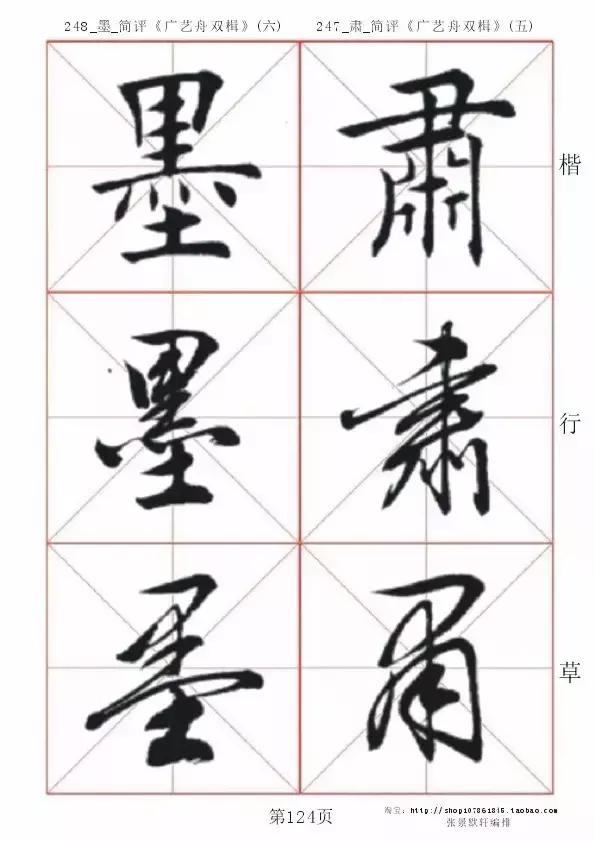 248_墨_简评《广艺舟双楫》(六)
247_肃_简评《广艺舟双楫》(五)
墨 肅 楷
墨 肅 行
墨 肅 草
第124页
淘宝：http://shop107861815.taobao.com
张景默轩编排